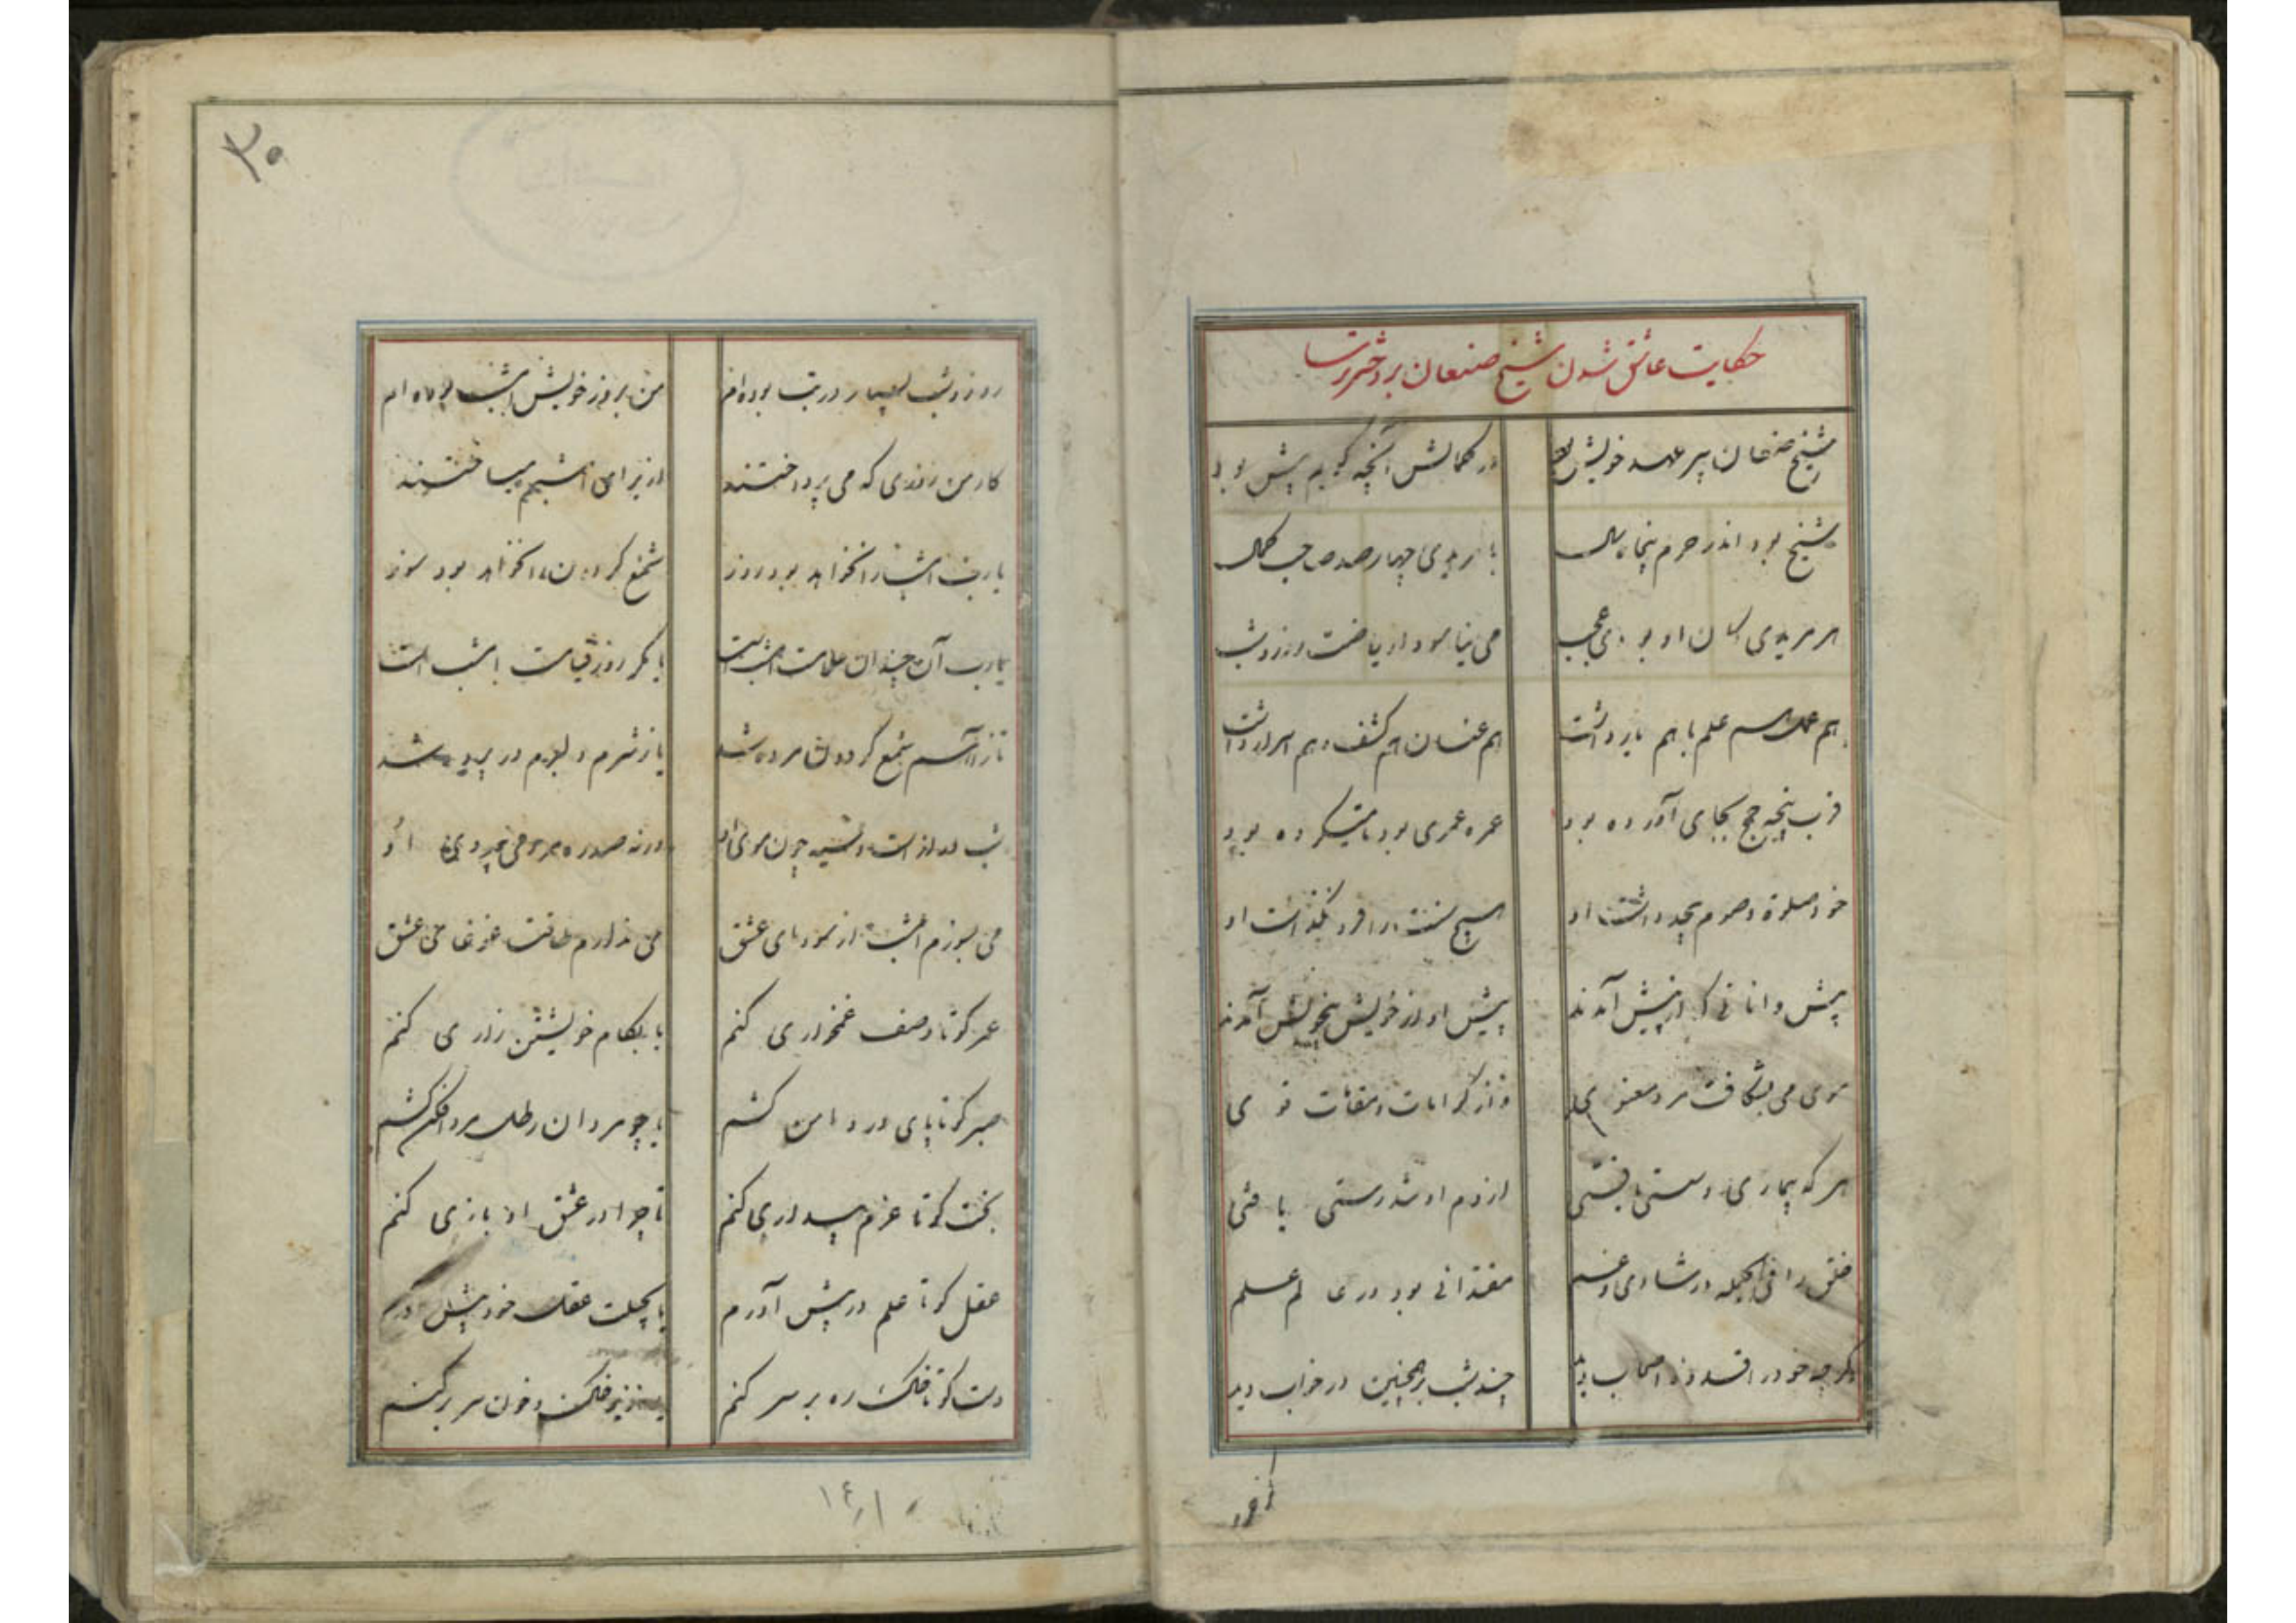 حکایت عاشق شدن شیخ صنعان بر دختر ترسا
شیخ صنعان پیر عهد خویش بود در کمالش آنچه گویم بیش بود
شیخ بود اندر حرم پنجاه سال با مریدی چهار صد صاحب کمال
هر مریدی کان او بودی عجب می نیاسود از ریاضت روز و شب
هم عمل هم علم با هم یار داشت هم عیان هم کشف و هم اسرار داشت
قرب پنجه حج بجای آورده بود عمره عمری بود تا میکرده بود
خود صلوة و صوم بیحد داشت او هیچ سنت را فرو نگذاشت او
پیشوایانی که در پیش آمدند پیش او از خویش بیخویش آمدند
موی می بشکافت مرد معنوی در کرامات و مقامات قوی
هر که بیماری و سستی یافتی از دم او تندرستی یافتی
خلق را فی الجمله در شادی و غم مقتدائی بود در عالم علم
گرچه خود را قدوهٔ اصحاب دید چند شب بر همچنین در خواب دید
۳۰
روز و شب بسیار در تب بوده ام من بروز خویش امشب بوده ام
کار من روزی که می پرداختند از برای امشبم میساختند
یارب امشب را نخواهد بود روز شمع گردون را نخواهد بود سوز
یارب آن چندان علامت امشب است یا مگر روز قیامت امشب است
یا از آهم شمع گردون مرده شد یا ز شرم دلبرم در پرده شد
شب دراز است و سیه چون موی او ورنه صد ره مردمی بی روی او
می بسوزم امشب از سودای عشق می ندارم طاقت غوغای عشق
عمر کو تا وصف غمخواری کنم یا بکام خویشتن زاری کنم
صبر کو تا پای در دامن کشم یا چو مردان رطل مرد افکن کشم
بخت کو تا عزم بیداری کنم تا چو او در عشق او یاری کنم
عقل کو تا علم در پیش آورم یا بحیلت عقل خود پیش آورم
دست کو تا خاک ره بر سر کنم یا ز زیر خاک و خون سر بر کنم